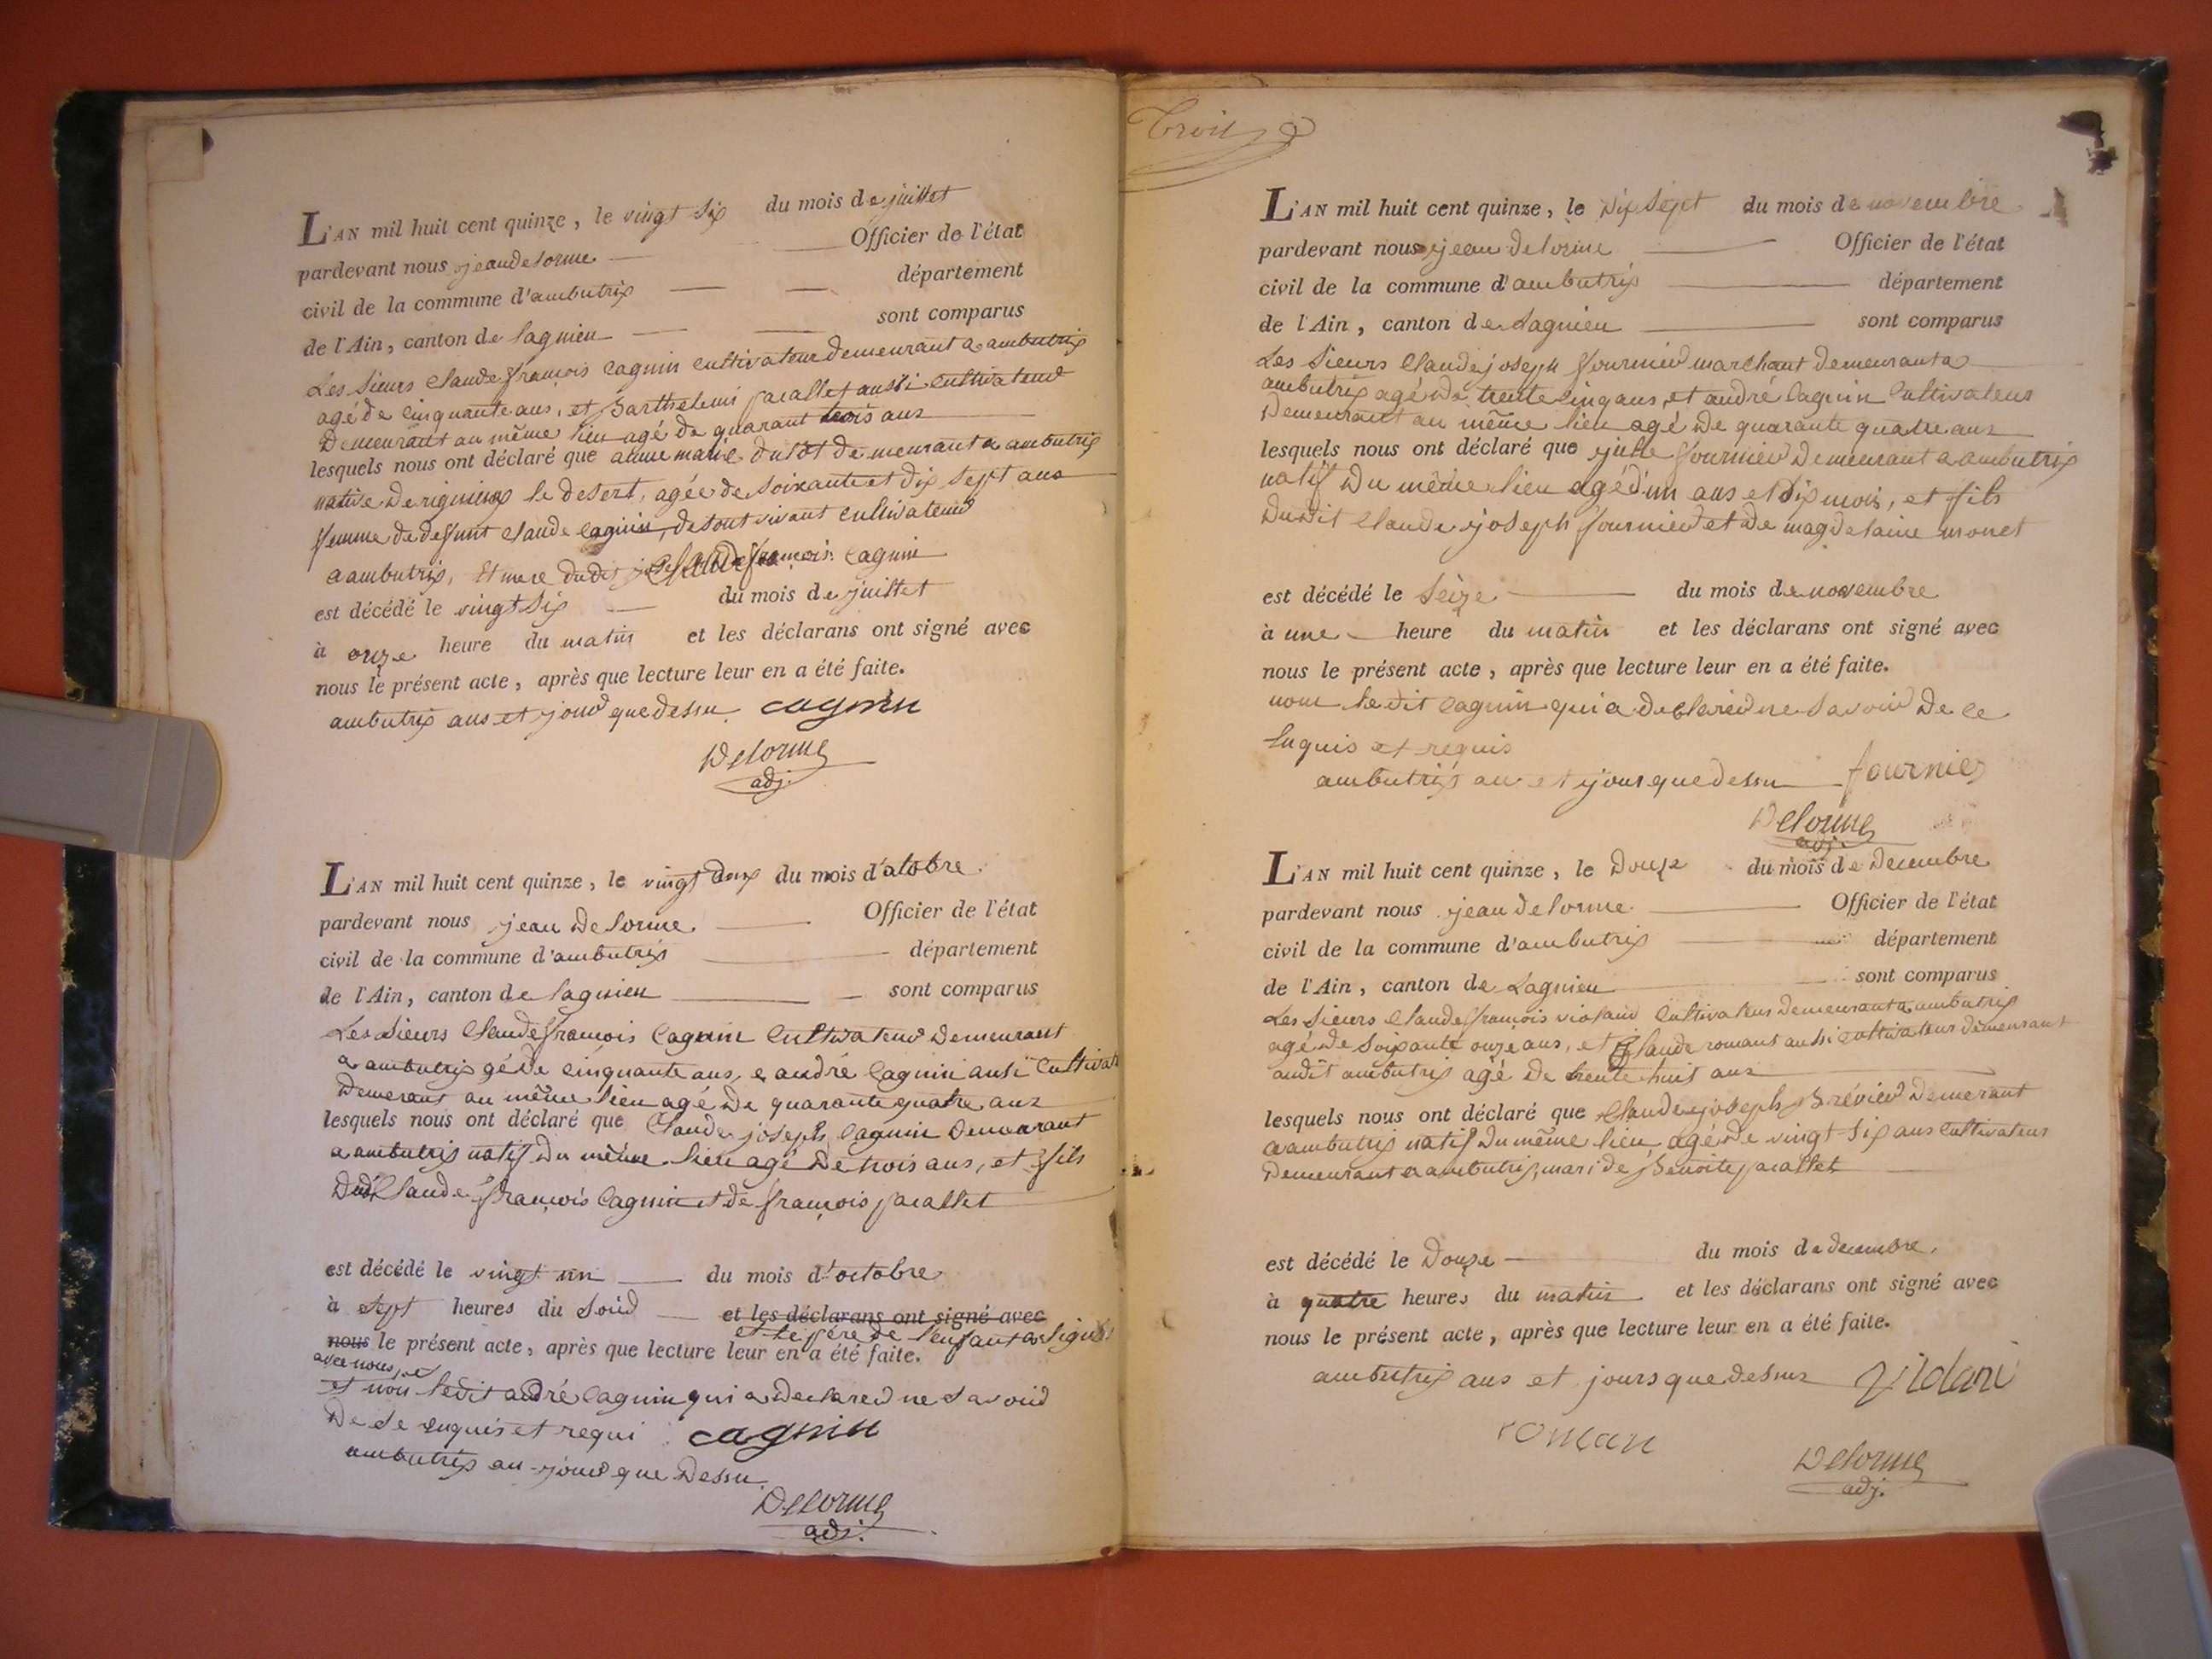 L'AN mil huit cent quinze, le vingt six du mois de juillet
pardevant nous jean delorme Officier de l'état
civil de la commune d'ambutrix département
de l'Ain, canton de lagnieu sont comparus
Les sieurs Claude françois Cagnin cultivateur demeurant a ambutrix
agé de Cinquante ans, et Barthelemi pacallet aussi cultivateur
demeurant au même lieu agé de quarant trois ans
lesquels nous ont déclaré que anne marie dutot demeurant a ambutrix
native de rignieux le desert, agée de soixante et dix sept ans
femme de defunt Claude Cagnin, de sont vivant cultivateur
a ambutrix, Et mere dudit Claude françois Cagnin
est décédé le vingt six du mois de juillet
à onze heure du matin et les déclarans ont signé avec
nous le présent acte, après que lecture leur en a été faite.
ambutrix ans et jour que dessu cagnin
Delorme
adj.
L'AN mil huit cent quinze, le vingt deux du mois d'atobre
pardevant nous jean Delorme Officier de l'état
civil de la commune d'ambutrix département
de l'Ain, canton de lagnieu sont comparus
Les sieurs Claude françois Cagnin Cultivateur Demeurant
a ambutrix gé de cinquante ans, e andré Cagnin ausi Cultivat
Demerant au même lieu agé De quarante quatre ans
lesquels nous ont déclaré que Claude joseph Cagnin Demeurant
a ambutrix natif Du même lieu agé De trois ans, et fils
Dud Claude françois Cagnin et de françois pacallet
est décédé le vingt un du mois d'octobre
à sept heures du soir et les déclarans ont signé avec
et le pére de l'enfant a signé
nous le présent acte, après que lecture leur en a été faite.
avec nous, et
et non ledit adré Cagnin qui a declarer ne savoir
De se enquis et requi cagnin
ambutrix an jour que Dessu
Delorme
adj.
Trois
L'AN mil huit cent quinze, le dix sept du mois de novembre
pardevant nous jean delorme Officier de l'état
civil de la commune d'ambutrix département
de l'Ain, canton de Lagnieu sont comparus
Les sieurs Claude joseph fournier marchant demeurant a
ambutrix agé de trente cinq ans, et andré Cagnin Cultivateur
Demeurant au même lieu agé De quarante quatre ans
lesquels nous ont déclaré que fournier Demeurant a ambutrix
natif Du même lieu agé d'un ans et dix mois, et fils
Dudit Claude joseph fournier et de magdelaine monet
est décédé le Seize du mois de novembre
à une heure du matin et les déclarans ont signé avec
nous le présent acte, après que lecture leur en a été faite.
non ledit Cagnin qui a declarer ne savoir De ce
Enquis et requis
ambutrix an et jour que dessu fournier
Delorme
adj.
L'AN mil huit cent quinze, le Douze du mois de Decembre
pardevant nous jean delorme Officier de l'état
civil de la commune d'ambutrix département
de l'Ain, canton de Lagnieu sont comparus
Les sieurs Claude françois Cultivateur Demeurant a ambutrix
agé de soixante onze ans, et Claude romant aussi cultivateur demeurant
audit ambutrix agé De trente huit ans
lesquels nous ont déclaré que Claude joseph Brévier Demerant
a ambutrix natif Du même lieu, agé de vingt-six ans Cultivateur
Demeurant a ambutrix, mari de Benoite pacallet
est décédé le Douze du mois de decembre
à quatre heures du matin et les déclarans ont signé avec
nous le présent acte, après que lecture leur en a été faite.
ambutrix ans et jours que dessus
roman
Delorme
adj.